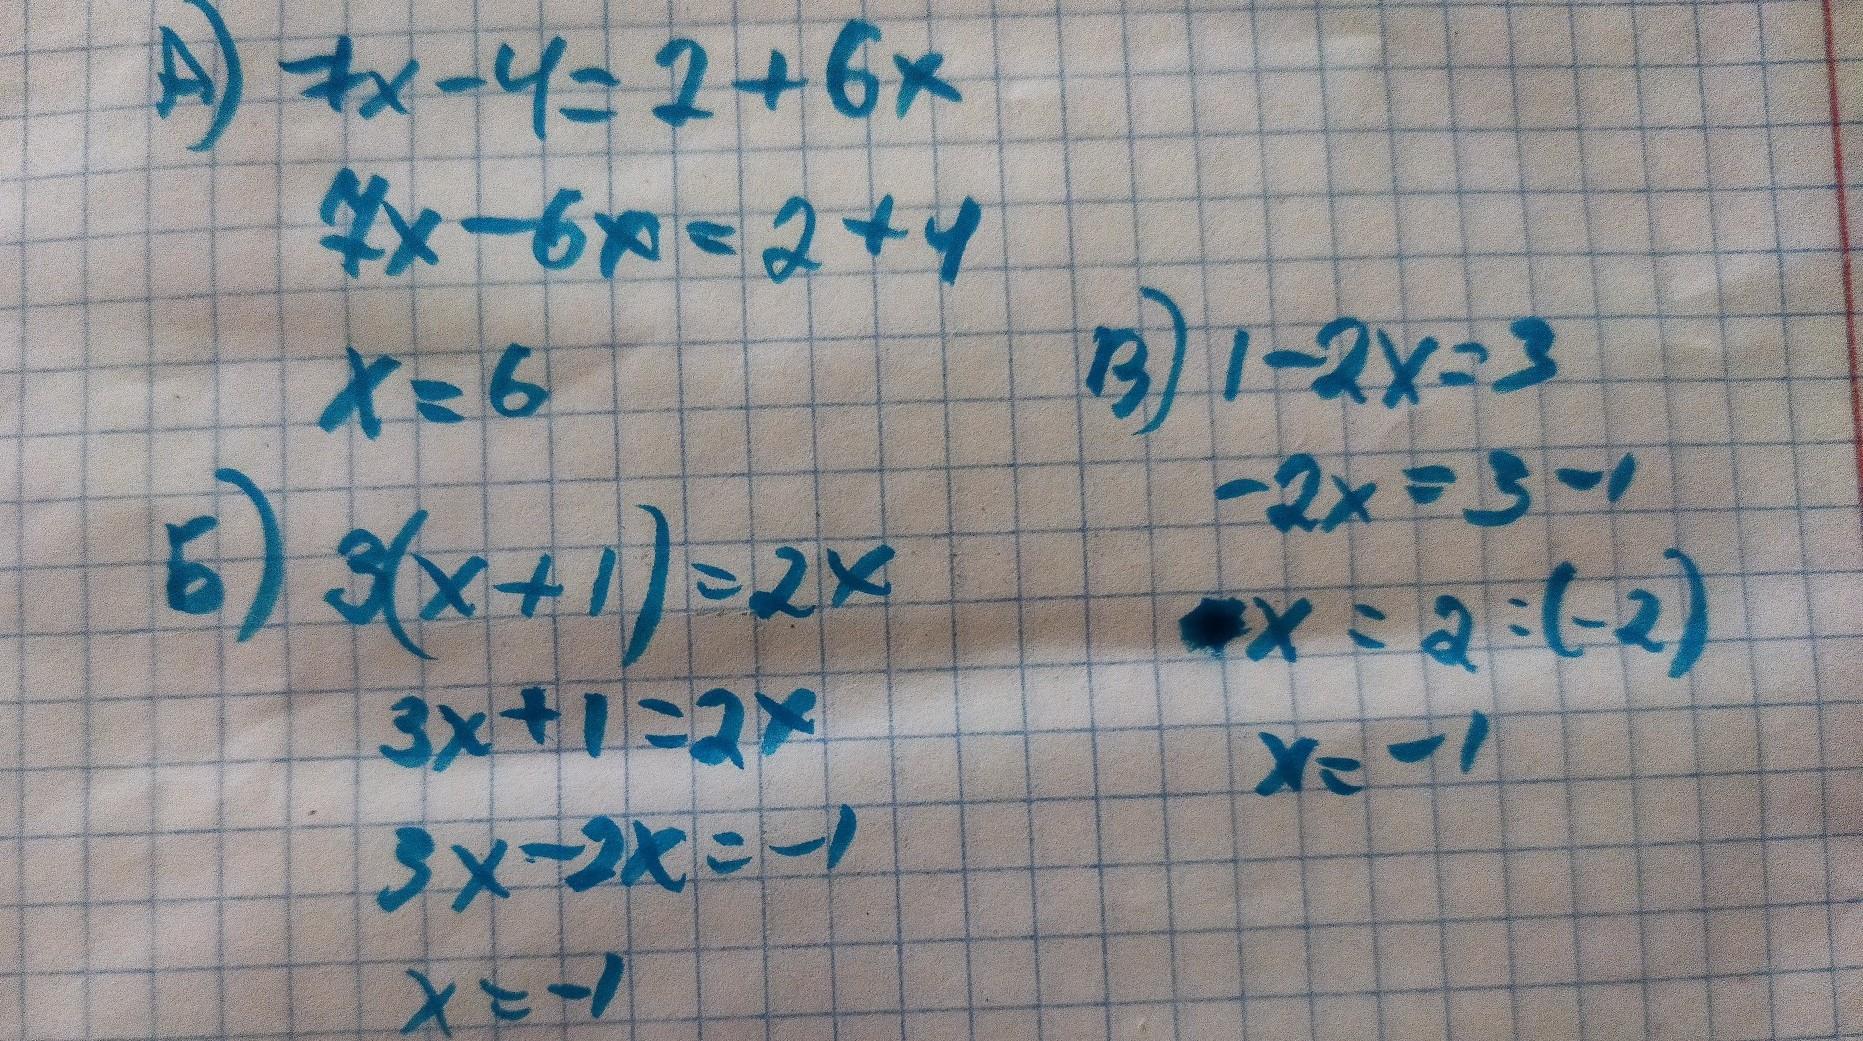 А) 7x-4=2+6x
7x-6x=2+4
x=6
Б) 3(x+1)=2x
3x+1=2x
3x-2x=-1
x=-1
В) 1-2x=3
-2x=3-1
x=2:(-2)
x=-1